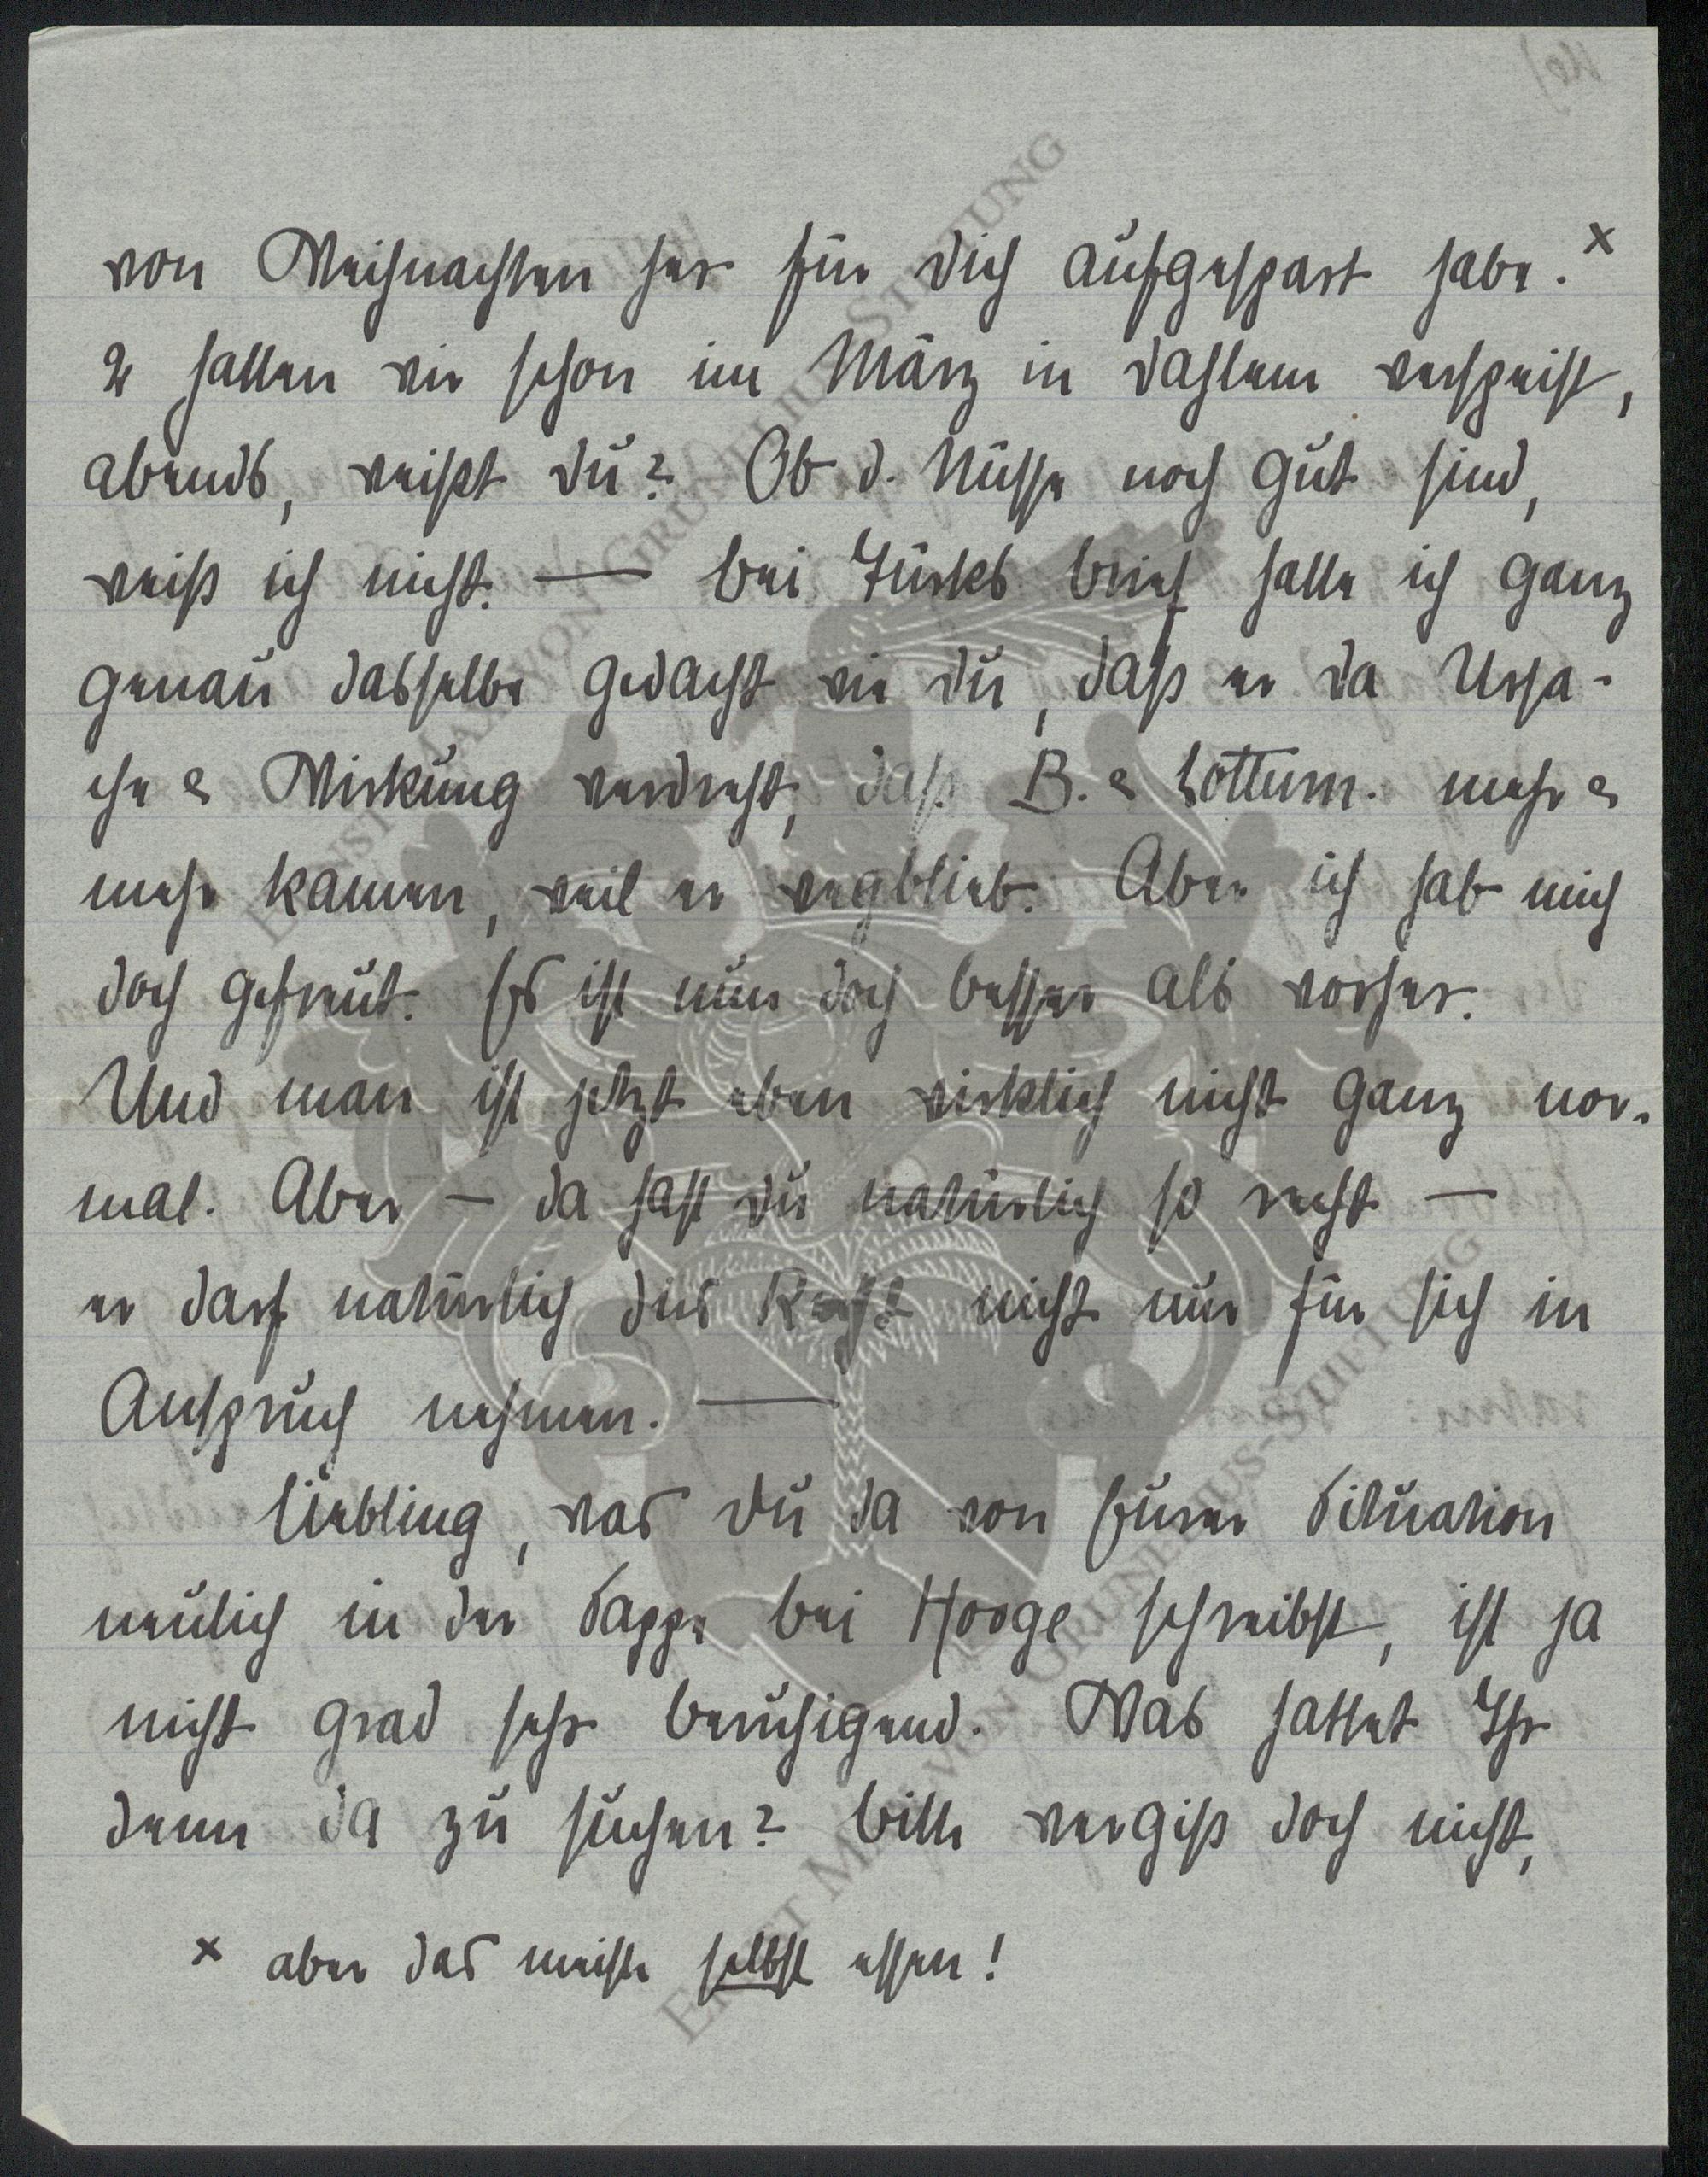 von Weihnachten her für dich aufgespart habe. x
2 hatten wir schon im März in Dahlem verspeist,
abends, weißt du? Ob d. Nüsse noch gut sind,
weiß ich nicht. — Bei Türks Brief hatte ich ganz
genau dasselbe gedacht wie du, daß er da Ursa-
che & Wirkung verdreht, daß B. & Lottum. mehr &
mehr kamen, weil er wegblieb. Aber ich hab mich
doch gefreut. Es ist nun doch besser als vorher.
Und man ist jetzt eben wirklich nicht ganz nor-
mal. Aber — da hast du natürlich so recht —
er darf natürlich dies Recht nicht nur für sich in
Anspruch nehmen. —
Liebling, was du da von Eurer Situation
neulich in der Sappe bei Hooge schreibst, ist ja
nicht grad sehr beruhigend. Was hattet Ihr
denn da zu suchen? Bitte vergiß doch nicht,
x aber das meiste selbst essen!
ERNST MAX VON GRUNELIUS-STIFTUNG
ERNST MAX VON GRUNELIUS-STIFTUNG